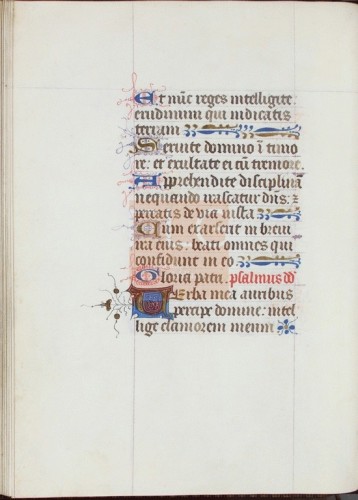 Et nūc reges intelligite:
erudimini qui iudicatis
terram
Seruite domino ī timo
re: et exultate ei cū tremore
Apprehendite disciplinā
nequando irascatur dn̄s: ⁊
pereatis de via iusta
Cum exarserit in breui
ira eius: beati omnes qui
confidunt in eo
Gloria patri. psalmus dd
Verba mea auribus
percipe domine: intel
lige clamorem meum